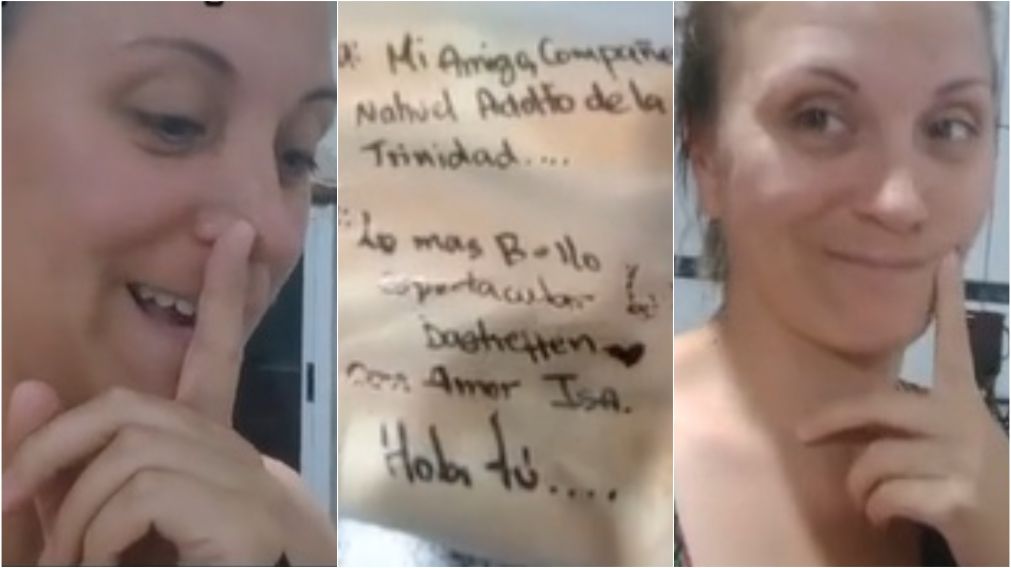 Mi Amiga, Compañe
Nahuel Adolfo de la
Trinidad....
Lo mas Bello
espectacular
Con Amor Isa.
Hola tú....